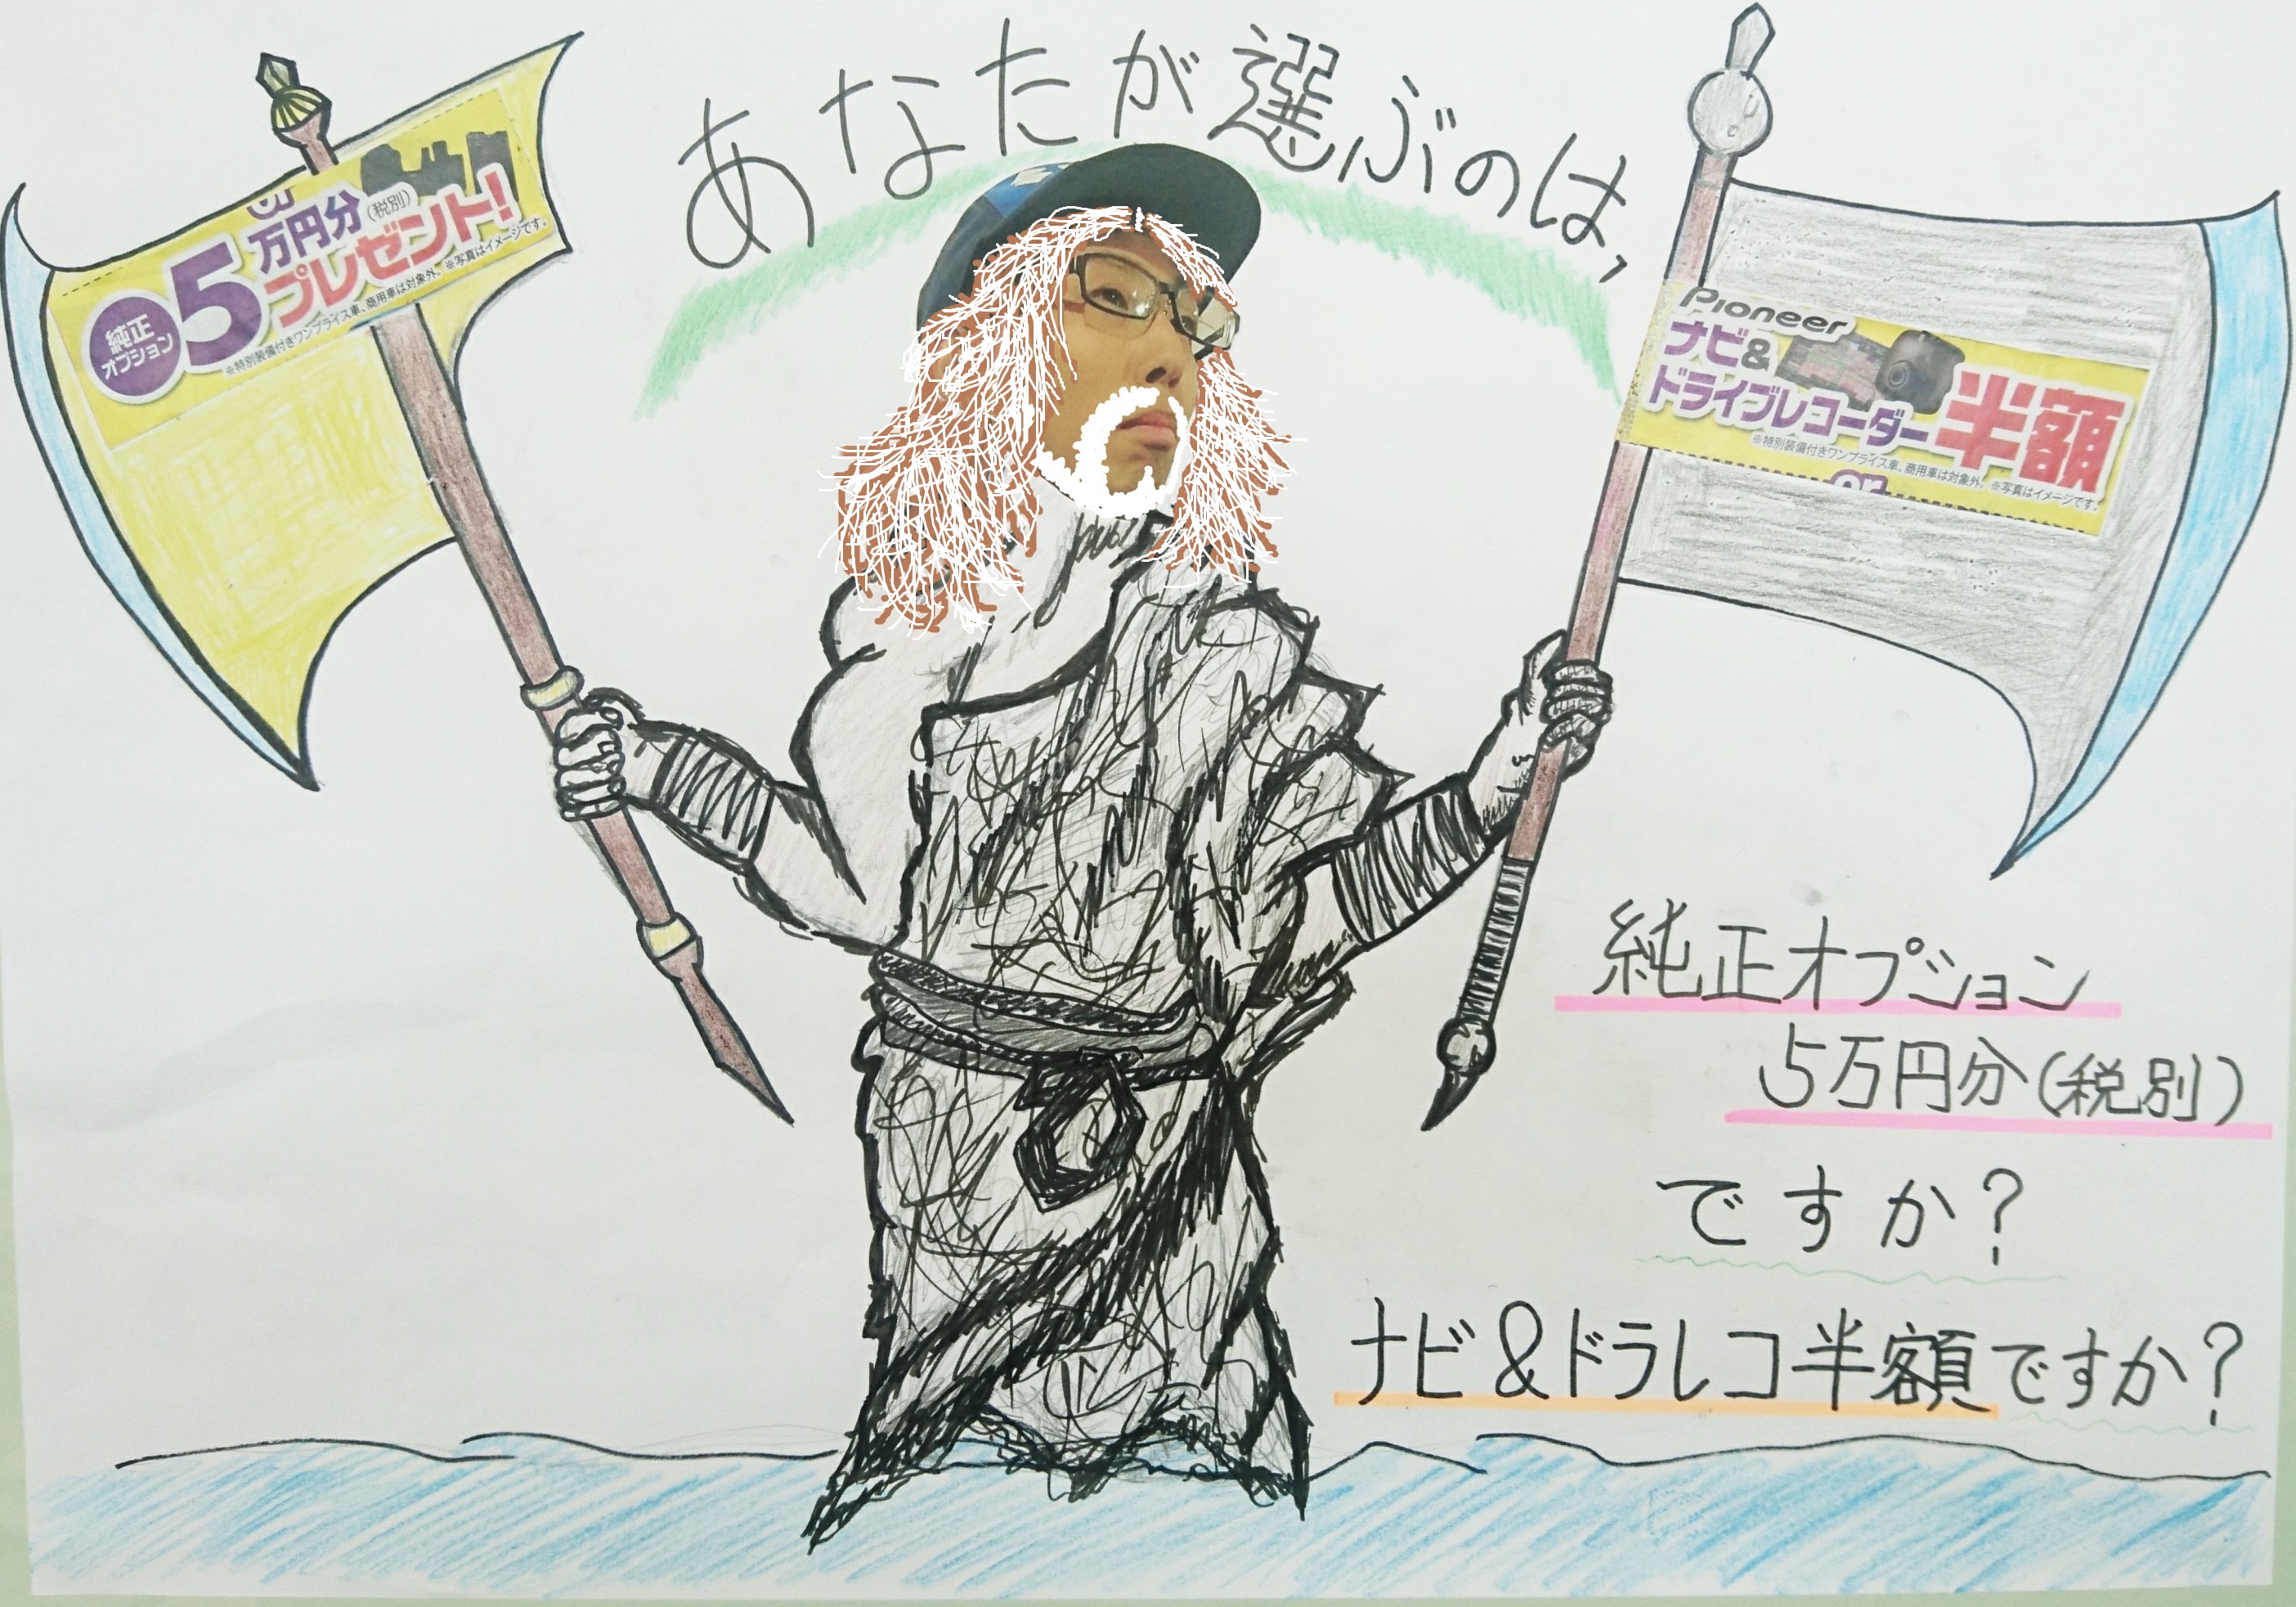 あなたが選ぶのは、
純正
オプション
5
万円分(税別)
プレゼント!
※特別装備付きワンプライス車、商用車は対象外。※写真はイメージです。
Pioneer
ナビ&
ドライブレコーダー半額
※特別装備付きワンプライス車、商用車は対象外。※写真はイメージです。
or
純正オプション
5万円分(税別)
ですか?
ナビ&ドラレコ半額ですか?